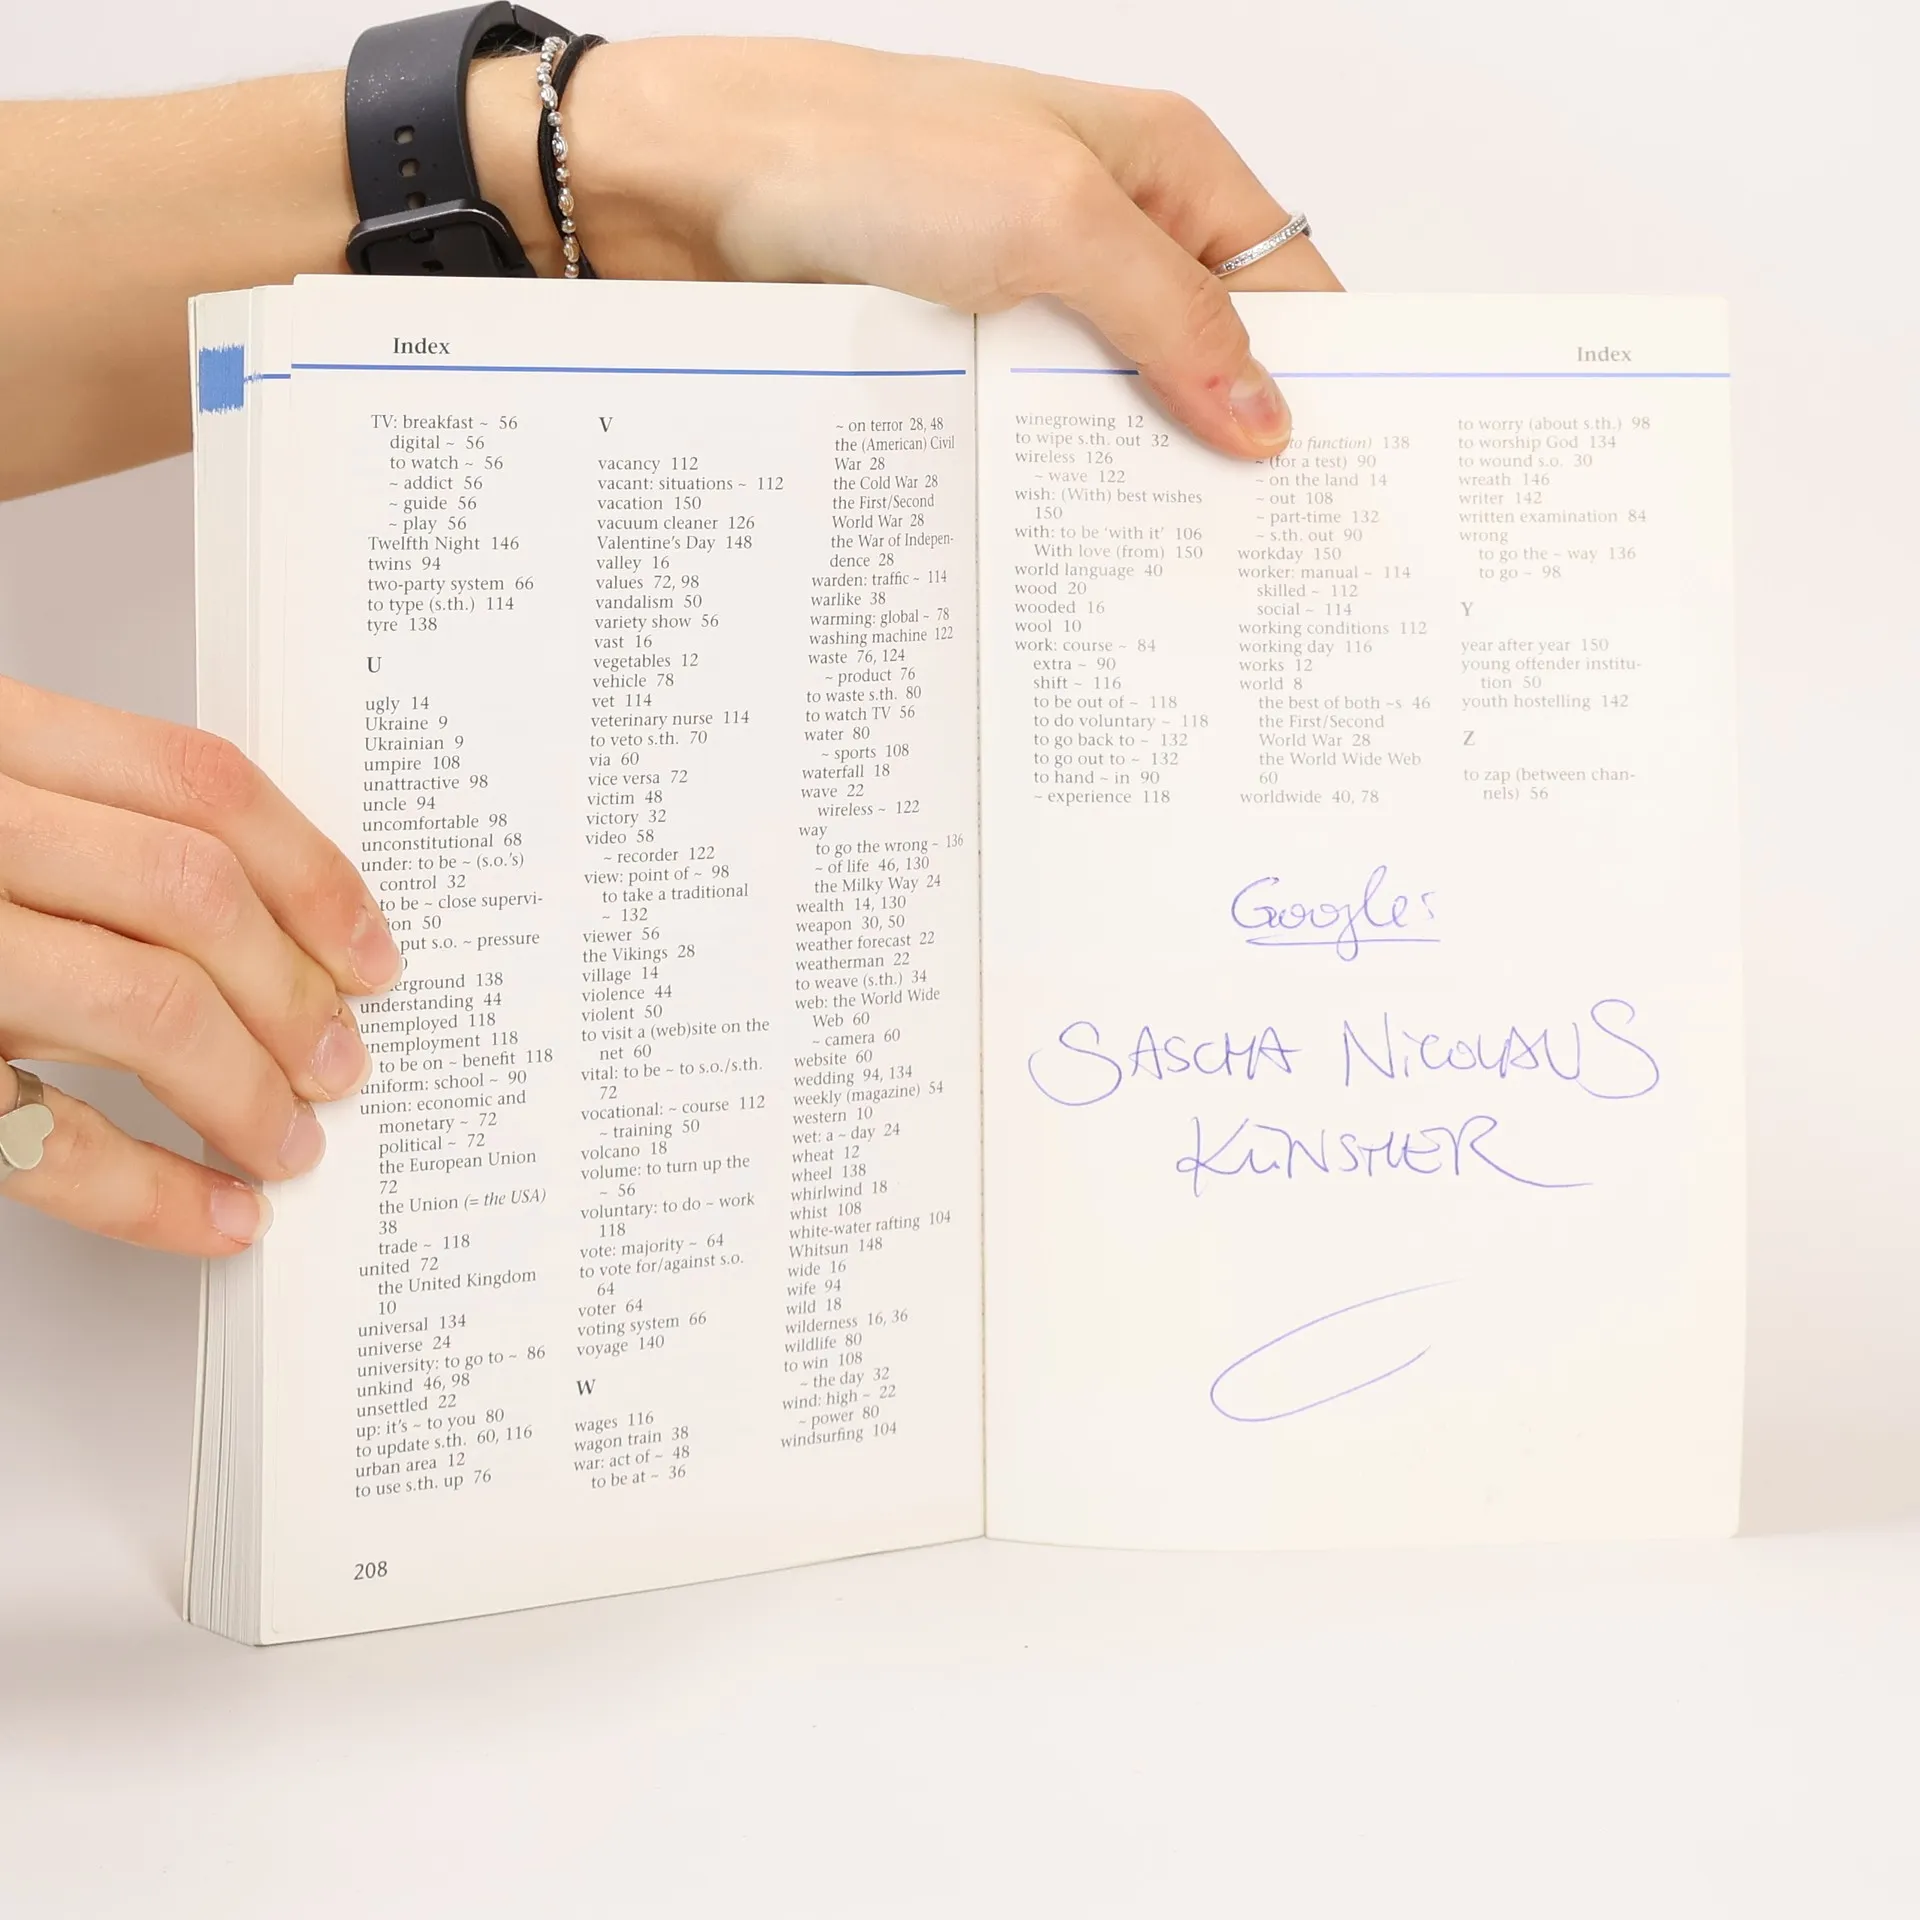 Index
TV: breakfast ~ 56
digital ~ 56
to watch ~ 56
~ addict 56
~ guide 56
~ play 56
Twelfth Night 146
twins 94
two-party system 66
to type (s.th.) 114
tyre 138
U
ugly 14
Ukraine 9
Ukrainian 9
umpire 108
unattractive 98
uncle 94
uncomfortable 98
unconstitutional 68
under: to be ~ (s.o.'s)
control 32
to be ~ close supervi-
ion 50
put s.o. ~ pressure
)
erground 138
understanding 44
unemployed 118
nemployment 118
to be on ~ benefit 118
uniform: school ~ 90
union: economic and
monetary ~ 72
political ~ 72
the European Union
72
the Union (= the USA)
38
trade ~ 118
united 72
the United Kingdom
10
universal 134
universe 24
university: to go to ~ 86
unkind 46, 98
unsettled 22
up: it's ~ to you 80
to update s.th. 60, 116
urban area 12
to use s.th. up 76
V
vacancy 112
vacant: situations ~ 112
vacation 150
vacuum cleaner 126
Valentine's Day 148
valley 16
values 72, 98
vandalism 50
variety show 56
vast 16
vegetables 12
vehicle 78
vet 114
veterinary nurse 114
to veto s.th. 70
via 60
vice versa 72
victim 48
victory 32
video 58
~ recorder 122
view: point of ~ 98
to take a traditional
~ 132
viewer 56
the Vikings 28
village 14
violence 44
violent 50
to visit a (web)site on the
net 60
vital: to be ~ to s.o./s.th.
72
vocational: ~ course 112
~ training 50
volcano 18
volume: to turn up the
~ 56
voluntary: to do ~ work
118
vote: majority ~ 64
to vote for/against s.o.
64
voter 64
voting system 66
voyage 140
W
wages 116
wagon train 38
war: act of ~ 48
to be at ~ 36
~ on terror 28, 48
the (American) Civil
War 28
the Cold War 28
the First/Second
World War 28
the War of Indepen-
dence 28
warden: traffic ~ 114
warlike 38
warming: global ~ 78
washing machine 122
waste 76, 124
~ product 76
to waste s.th. 80
to watch TV 56
water 80
~ sports 108
waterfall 18
wave 22
wireless ~ 122
way
to go the wrong ~ 136
~ of life 46, 130
the Milky Way 24
wealth 14, 130
weapon 30, 50
weather forecast 22
weatherman 22
to weave (s.th.) 34
web: the World Wide
Web 60
~ camera 60
website 60
wedding 94, 134
weekly (magazine) 54
western 10
wet: a ~ day 24
wheat 12
wheel 138
whirlwind 18
whist 108
white-water rafting 104
Whitsun 148
wide 16
wife 94
wild 18
wilderness 16, 36
wildlife 80
to win 108
~ the day 32
wind: high ~ 22
~ power 80
windsurfing 104
208
Index
winegrowing 12
to wipe s.th. out 32
wireless 126
~ wave 122
wish: (With) best wishes
150
with: to be 'with it' 106
With love (from) 150
world language 40
wood 20
wooded 16
wool 10
work: course ~ 84
extra ~ 90
shift ~ 116
to be out of ~ 118
to do voluntary ~ 118
to go back to ~ 132
to go out to ~ 132
to hand ~ in 90
~ experience 118
to function) 138
~ (for a test) 90
~ on the land 14
~ out 108
~ part-time 132
~ s.th. out 90
workday 150
worker: manual ~ 114
skilled ~ 112
social ~ 114
working conditions 112
working day 116
works 12
world 8
the best of both ~s 46
the First/Second
World War 28
the World Wide Web
60
worldwide 40, 78
to worry (about s.th.) 98
to worship God 134
to wound s.o. 30
wreath 146
writer 142
written examination 84
wrong
to go the ~ way 136
to go ~ 98
Y
year after year 150
young offender institu-
tion 50
youth hostelling 142
Z
to zap (between chan-
nels) 56
Google:
SASCHA NiCOLAUS
KÜNSTLER